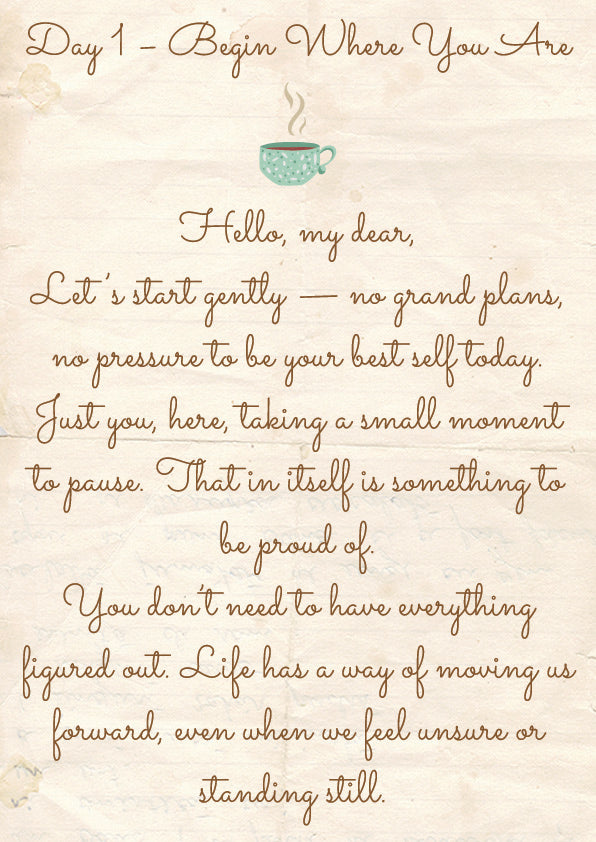 Day 1 – Begin Where You Are
Hello, my dear,
Let's start gently — no grand plans,
no pressure to be your best self today.
Just you, here, taking a small moment
to pause. That in itself is something to
be proud of.
You don't need to have everything
figured out. Life has a way of moving us
forward, even when we feel unsure or
standing still.